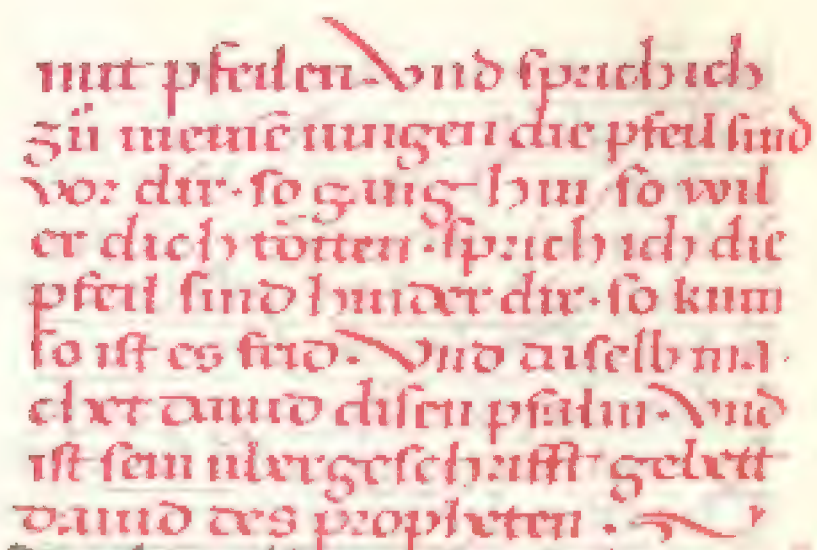 mit pfeilen. Vnd sprich ich
zů meinē iungen die pfeil sind
vor dir. so ging hin so wil
er dich tötten. sprich ich die
pfeil sind hinder dir. so kum
so ist es frid. Vnd desselb mā
chet dauid disen psalm. Vnd
ist sein übergeschrifft gebett
dauid des propheten.